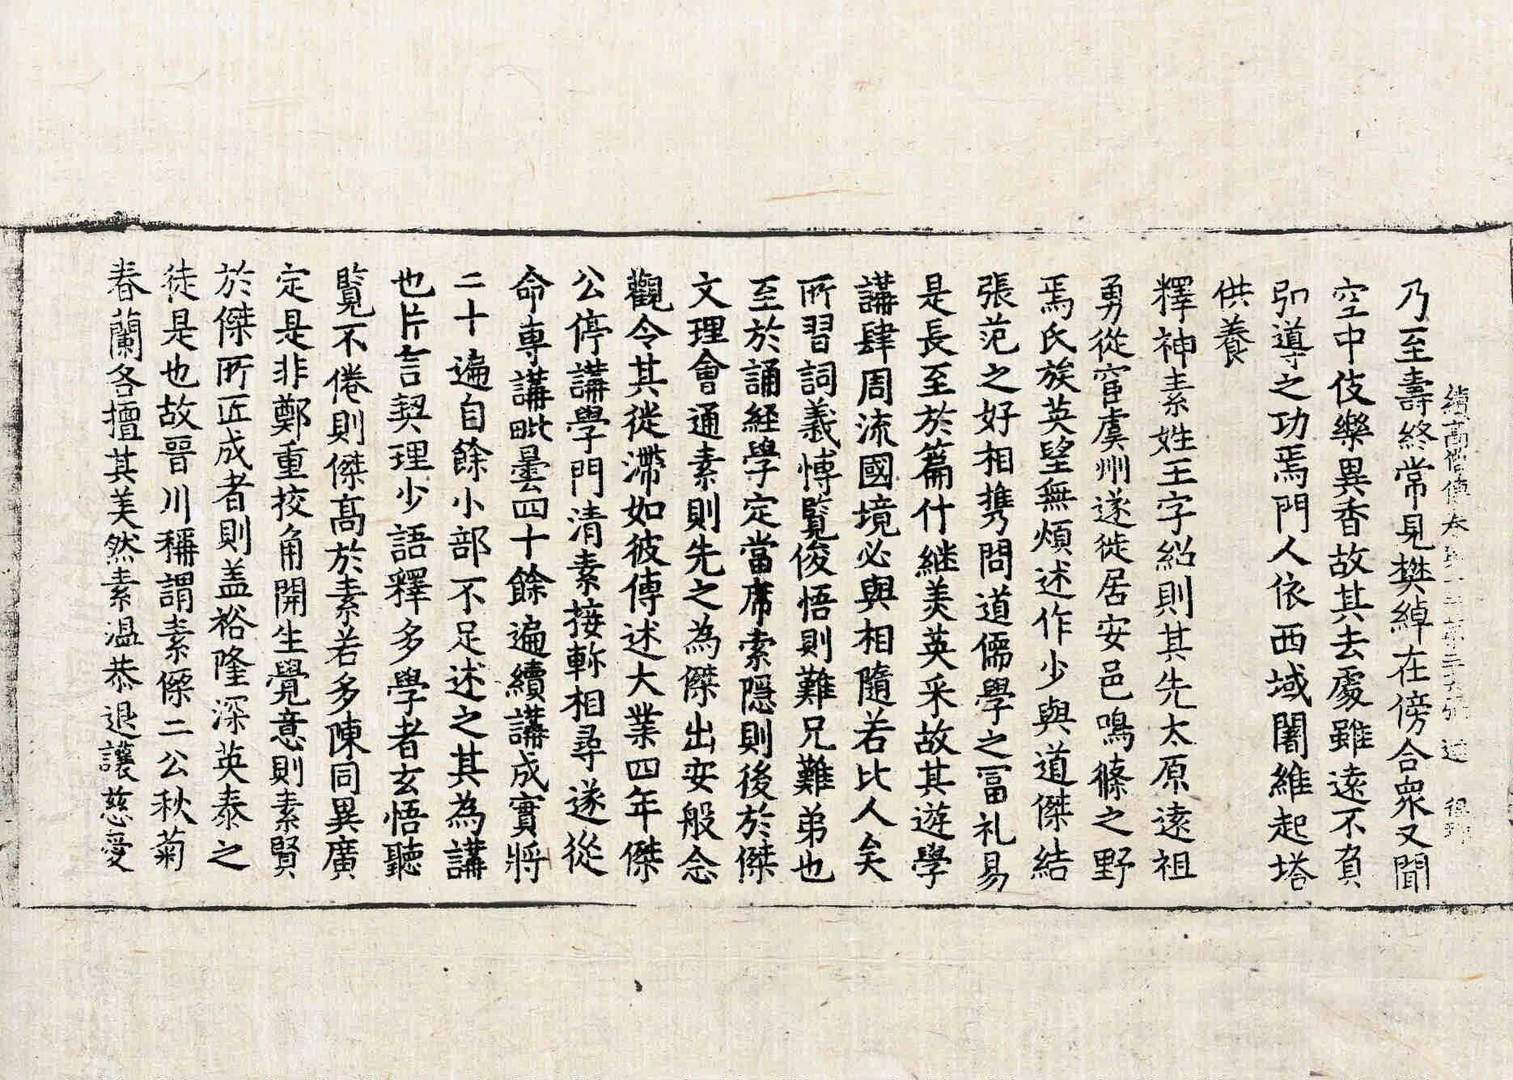 續高僧傳卷第十三 第二十張 逵
乃至壽終常見樊綽在傍合衆又聞
空中伎樂異香故其去處雖遠不負
引導之功焉門人依西域闍維起塔
供養
釋神素姓王字紹則其先太原遠祖
勇從宦虞州遂徙居安邑鳴條之野
焉氏族英望無煩述作少與道傑結
張范之好相携問道儒學之冨礼易
是長至於篇什継美英采故其遊學
講肆周流國境必與相隨若比人矣
所習詞義愽覧俊悟則難兄難弟也
至於誦経學定當席索隱則後於傑
文理會通素則先之為傑出安般念
觀令其從滯如彼傳述大業四年傑
公停講學門清素接軫相尋遂從
命專講毗曇四十餘遍續講成實將
二十遍自餘小部不足述之其為講
也片言契理少語釋多學者玄悟聽
覧不倦則傑髙於素若多陳同異廣
定是非鄭重挍角開生覺意則素賢
於傑所匠成者則盖裕隆深英泰之
徒是也故晉川稱謂素傑二公秋菊
春蘭各擅其美然素温恭退讓慈愛